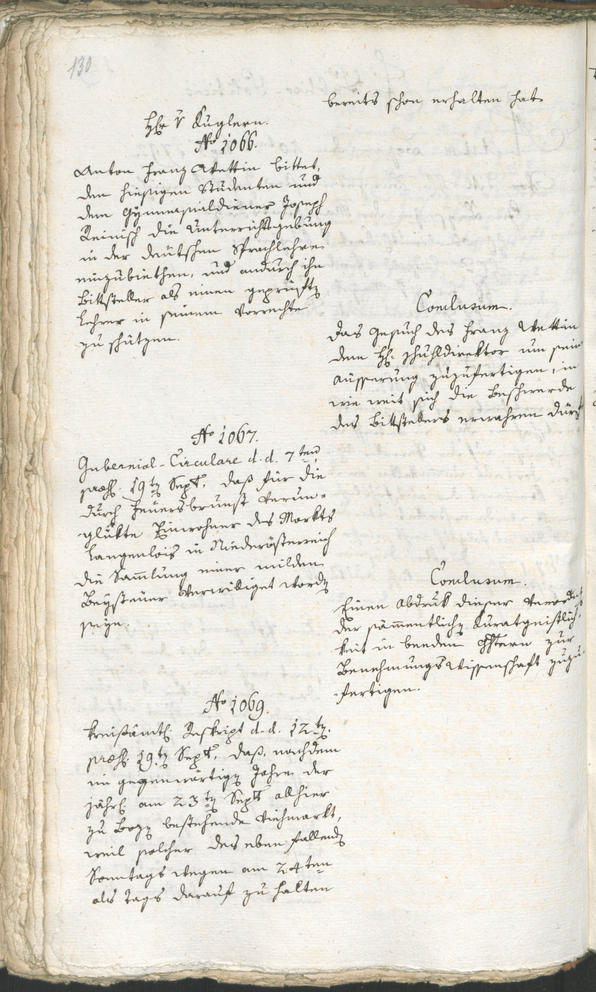 130
bereits schon erhalten hat.
H: v Kuglern.
No 1066.
Anton Franz Wettin bittet,
den hiesigen Studenten und
dem Gymnasialdiener Joseph
Reinisch die Unterrichtgebung
in der deutschen Sprachlehre
einzubiethen, und andurch ihn
Bittsteller als einen geprüften
Lehrer in seinem Vorrechte
zu schützen.
Conclusum.
Das Gesuch des Franz Wettin
dem H: Schuhldirektor um seine
äusserung zuzufertigen, in
wie weit sich die Beschwerde
des Bittstellers erwahren dürf
No 1067.
Gubernial-Circulare d. d. 7ten
præs. 19ten Sept., daß für die
durch Feuersbrunst verun-
glükte Einwohner des Markts
Langenlois in Niederösterreich
die Sammlung einer milden
Beysteuer verwilliget worden
seye.
Conclusum.
Einen Abdruk dieser Verord
der sämmentlichen Kuratgeistlich
keit in beeden zur
Benehmungswissenschaft zuzu
fertigen.
No 1069.
Kreisämtl. Reskript d. d. 12ten
præs. 19ten Sept., daß, nachdem
im gegenwärtigen Jahre der
jährl. am 23ten Sept. allhier
zu Bozen bestehende Viehmarkt,
weil solcher des eben fallenden
Sonntags wegen am 24ten
als tags darauf zu halten